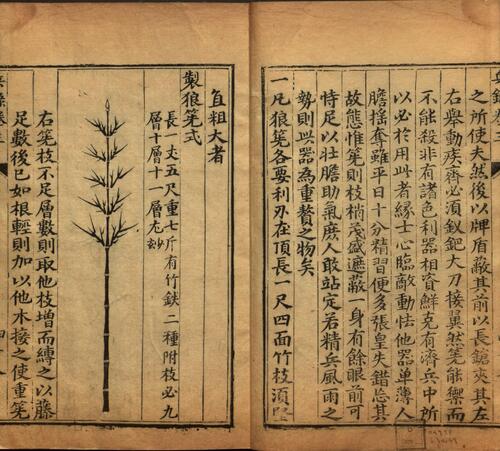 之所使夫然後以牌盾蔽其前以長鎗夾其左
右舉動疾齊必須釵鈀大刀接翼然筅能禦而
不能殺非有諸色利器相資鮮克有濟兵中所
以必於用此者緣士心臨敵動怯他器單薄人
膽搖奪雖平日十分精習便多張皇失錯忘其
故態惟筅則枝梢茂盛遮蔽一身有餘眼前可
恃足以壯膽助氣庶人敢站定若精兵風雨之
勢則此器為重贅之物矣
一凡狼筅各要利刃在頂長一尺四面竹枝須
直粗大者
製狼筅式
長一丈五尺重七斤有竹鉄二種附枝必九
層十層十一層尤妙
右筅枝不足層數則取他枝增而縛之以藤
足數後已如根輕則加以他木接之使重筅